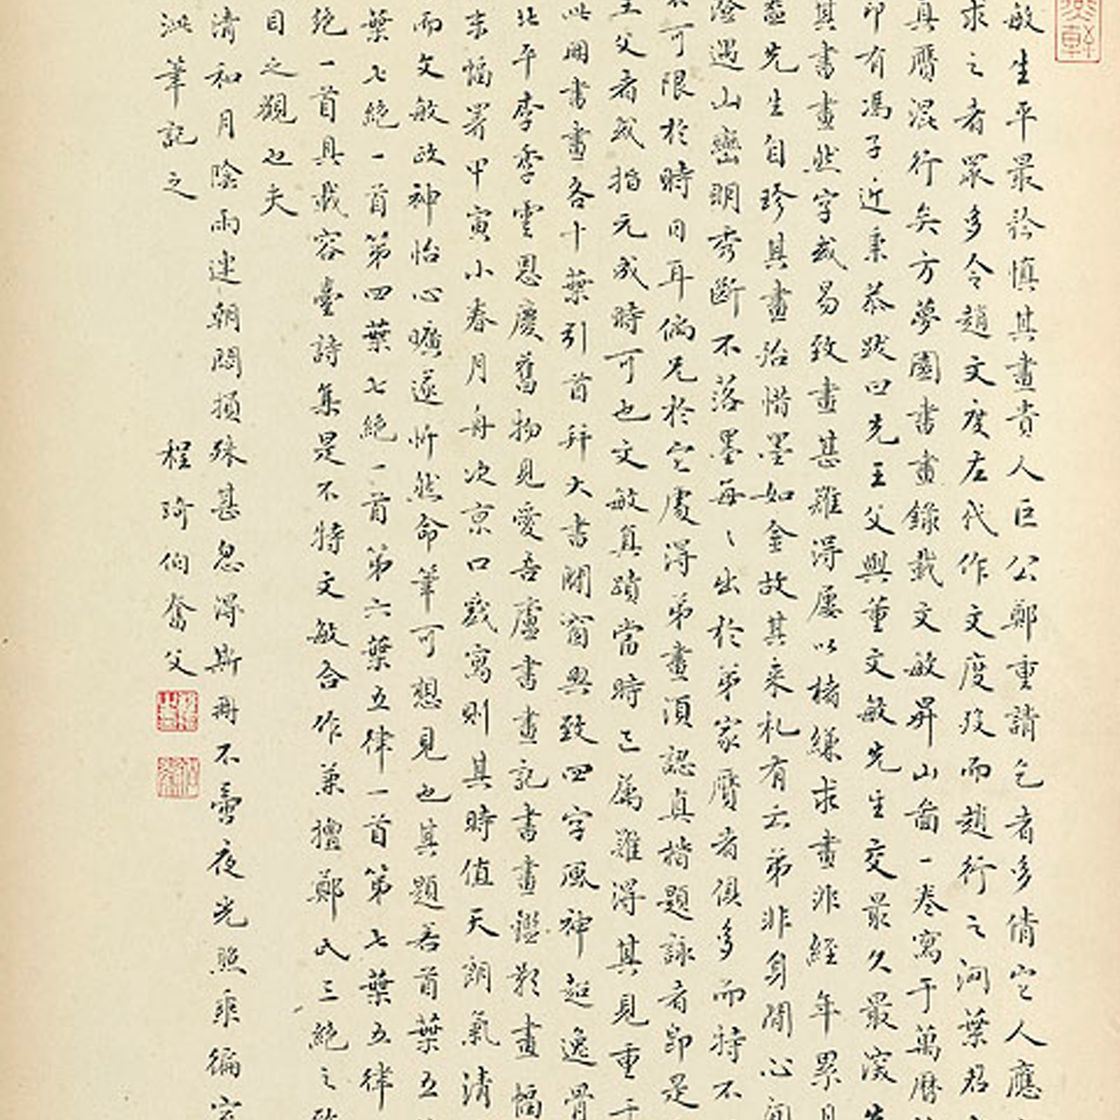 敏生平最矜慎其畫貴人巨公鄭重請乞者多倩它人應
求之者眾多令趙文度左代作文度歿而趙行之洞葉君
真贋混行矣方夢園書畫錄載文敏昇山啚一卷寫于萬曆
印有馮子近秉恭跋曰先王父與董文敏先生交最久最深
其書畫然字或易致畫甚難得屢以楮縑求畫非經年累月
蓋先生自珍其畫殆惜墨如金故其來札有云弟非身閒心閒
澄遇山巒明秀斷不落墨每〻出於弟家贋者俱多而特不
可限於時日耳倘兄於它處得弟畫須認真楷題詠者即是
王父者或指元成時可也文敏真蹟當時已屬難得其見重于
此冊書畫各十葉引首并大書開窗興致四字風神超逸骨
北平李季雲恩慶舊物見愛吾廬書畫記書畫鑑影畫幅
末幅署甲寅小春月舟次京口戲寫則其時值天朗氣清
而文敏政神怡心曠遂忻然命筆可想見也其題若首葉五
葉七絕一首第四葉七絕一首第六葉五律一首第七葉五律
絕一首具載容臺詩集是不特文敏合作兼擅鄭氏三絕之
目之觀也夫
清和月陰雨連朝悶損殊甚忽得斯冊不啻夜光照乘徧
泚筆記之 程琦伯奮父